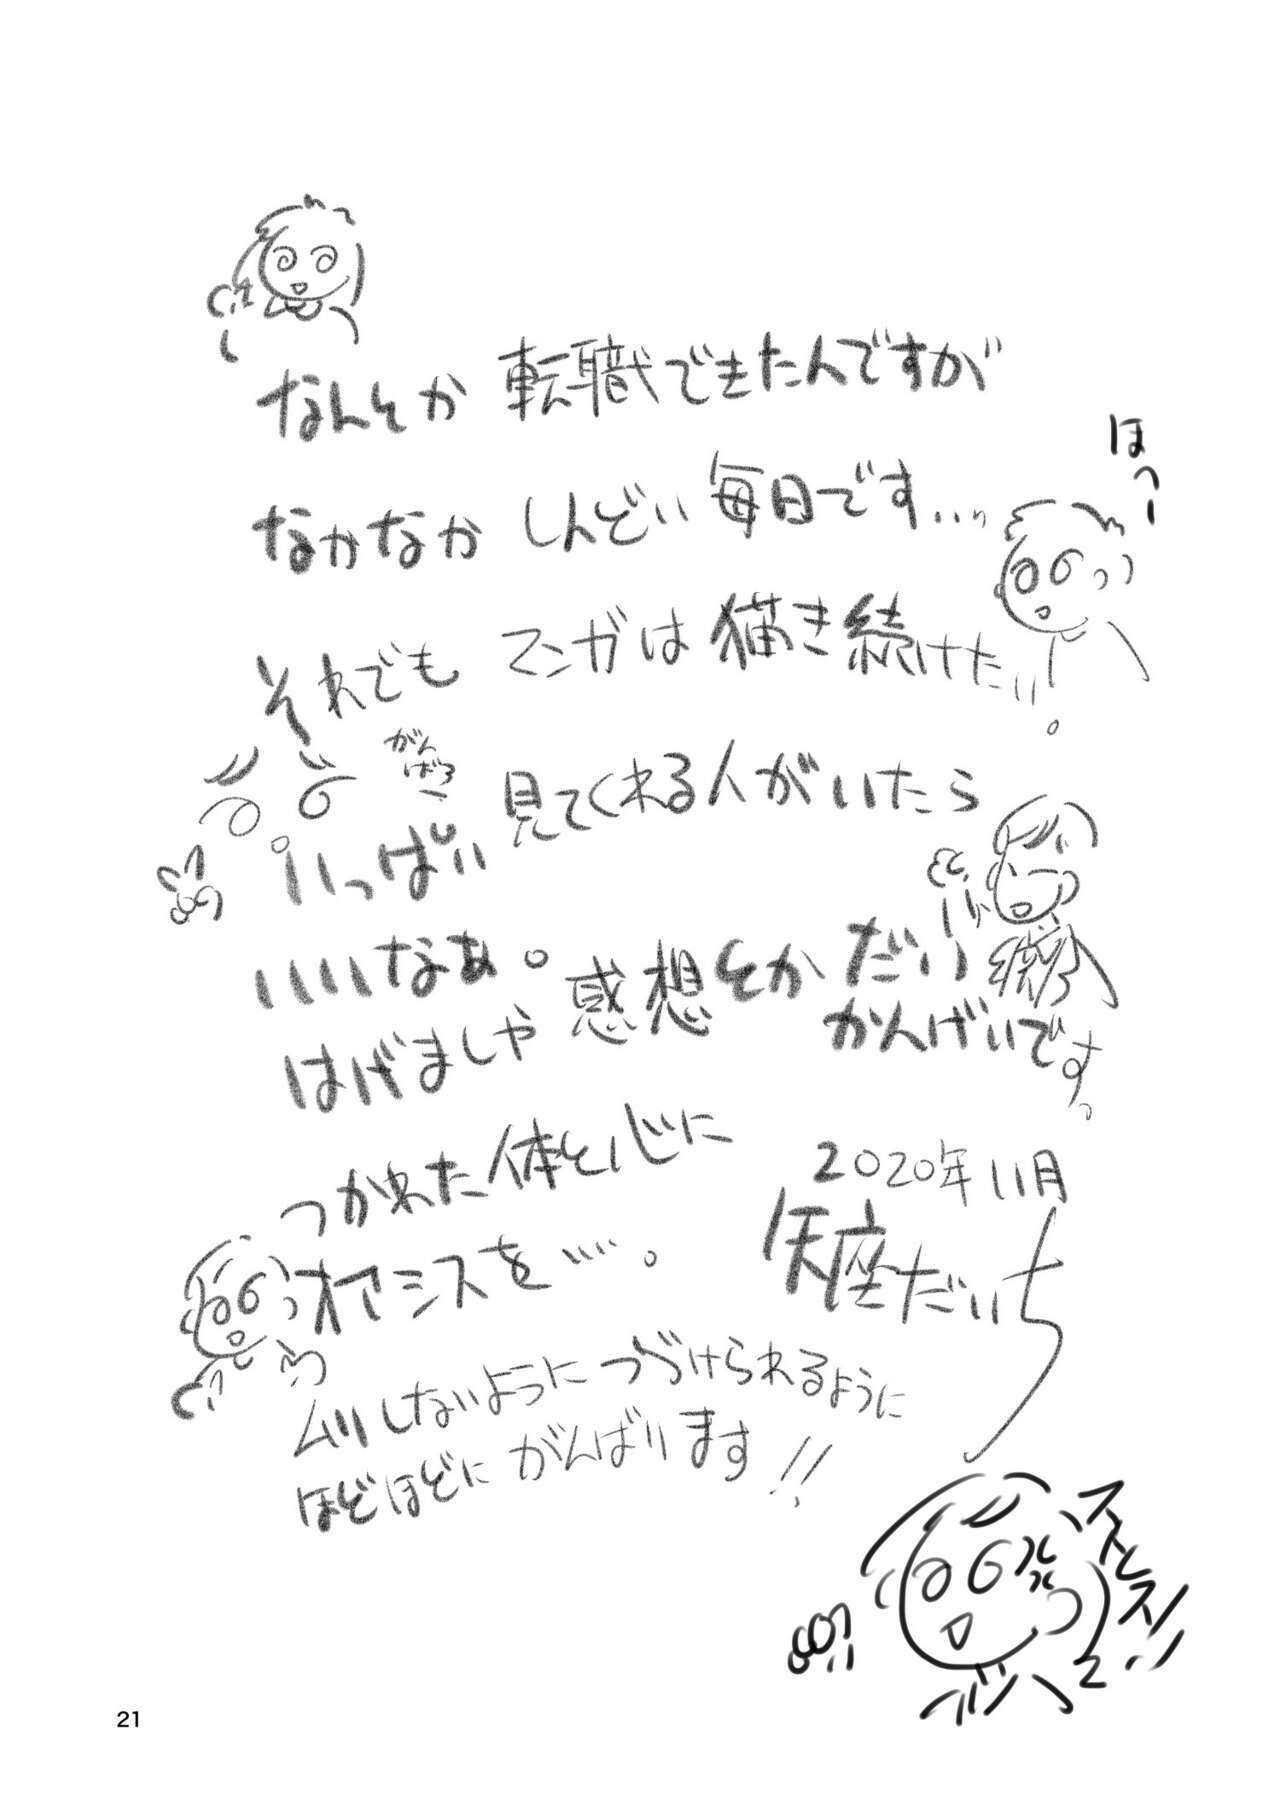 なんとか 転職できたんですが
ほっー
なかなか しんどい 毎日です...
それでも マンガは 描き続けたい。
がん
ばろー
いっぱい 見てくれる人がいたら
いいなぁ。
はげましや 感想とか だい
かんげいです。
つかれた 体と心に
オアシスを…。
2020年11月
矢座だいち
ムリしないように つづけられるように
ほどほどに がんばります!!
21